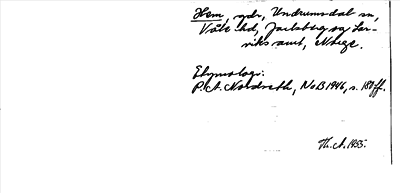 Hem, gdr, Undrumsdal sn,
Våle hd, Jarlsberg og Lar-
viks amt, Norge.
Etymologi:
P. A. Nordseth, NoB 1946, s. 187 ff.
Th. A. 1955.